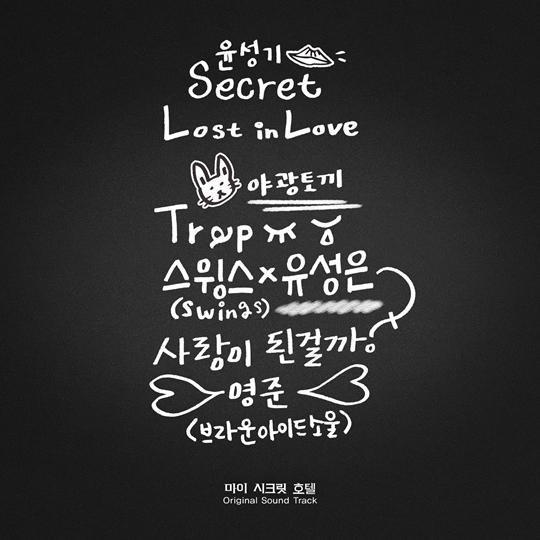 윤성기
Secret
Lost in Love
야광토끼
Trap
스윙스×유성은
(Swings)
사랑이 된걸까?
영준
(브라운아이드소울)
마이 시크릿 호텔
Original Sound Track